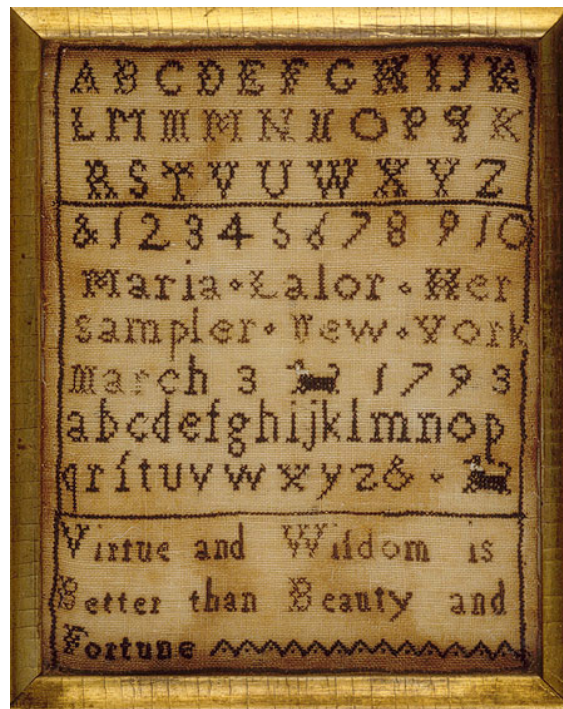 A B C D E F G H I J K
L M M M N N O P q K
R S T V U W X Y Z
& 1 2 3 4 5 6 7 8 9 10
Maria · Lalor · Her
sampler · New · York
March 3 1793
abcdefghijklmnop
qrſtuvwxyz& ·
Virtue and Wiſdom is
Better than Beauty and
Fortune